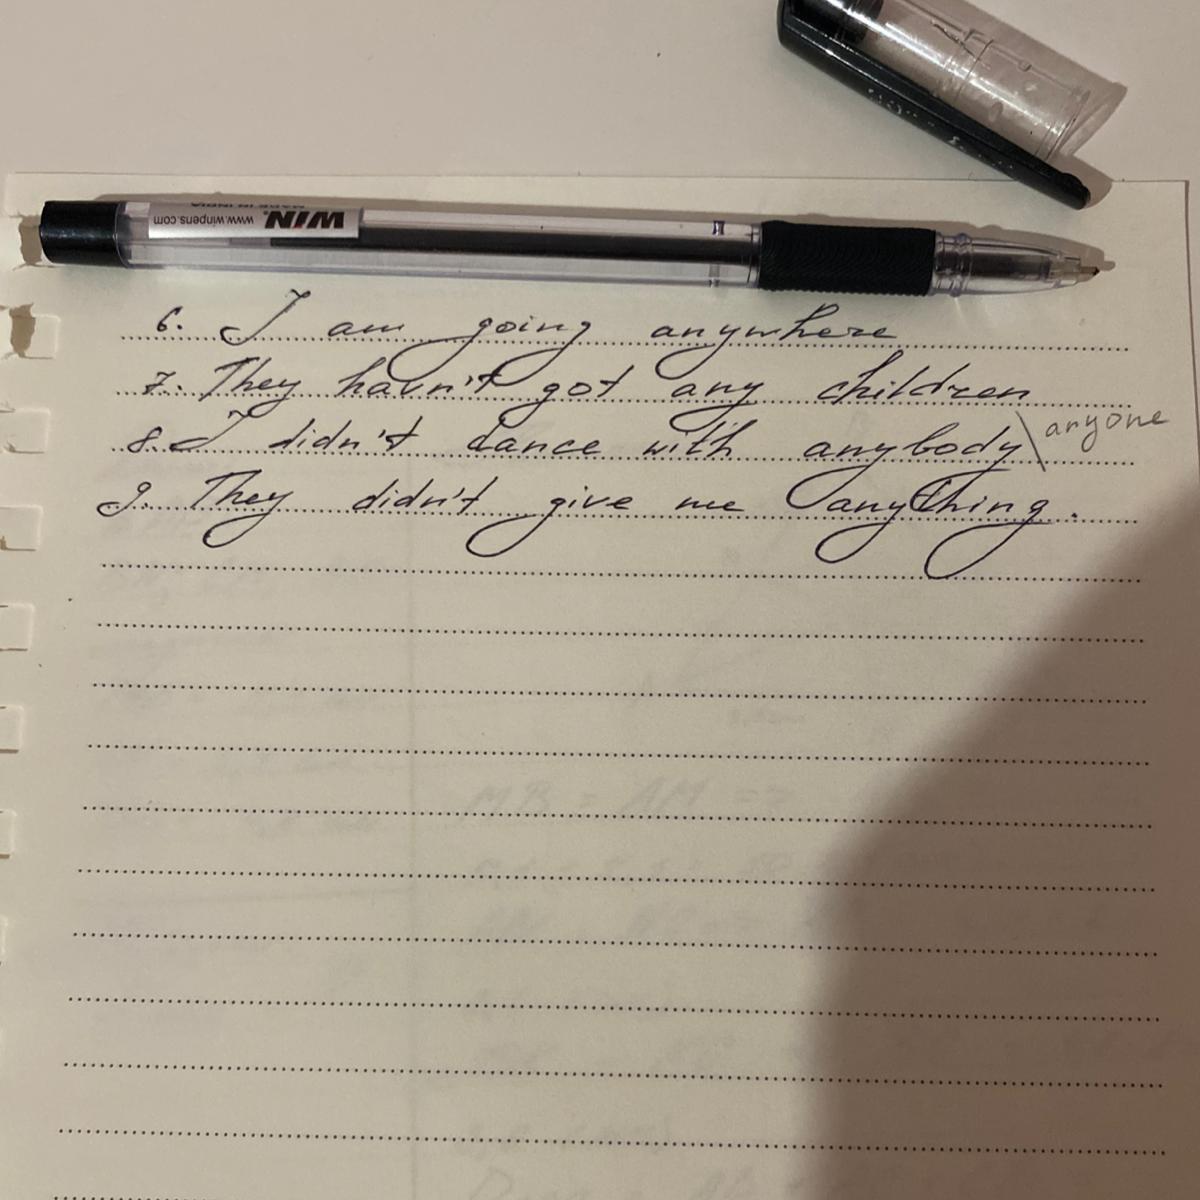 WIN
www.winpens.com
MADE IN INDIA
6. I am going anywhere
7. They havn't got any children
8. I didn't dance with anybody \ anyone
9. They didn't give me anything.
MB = AM =>